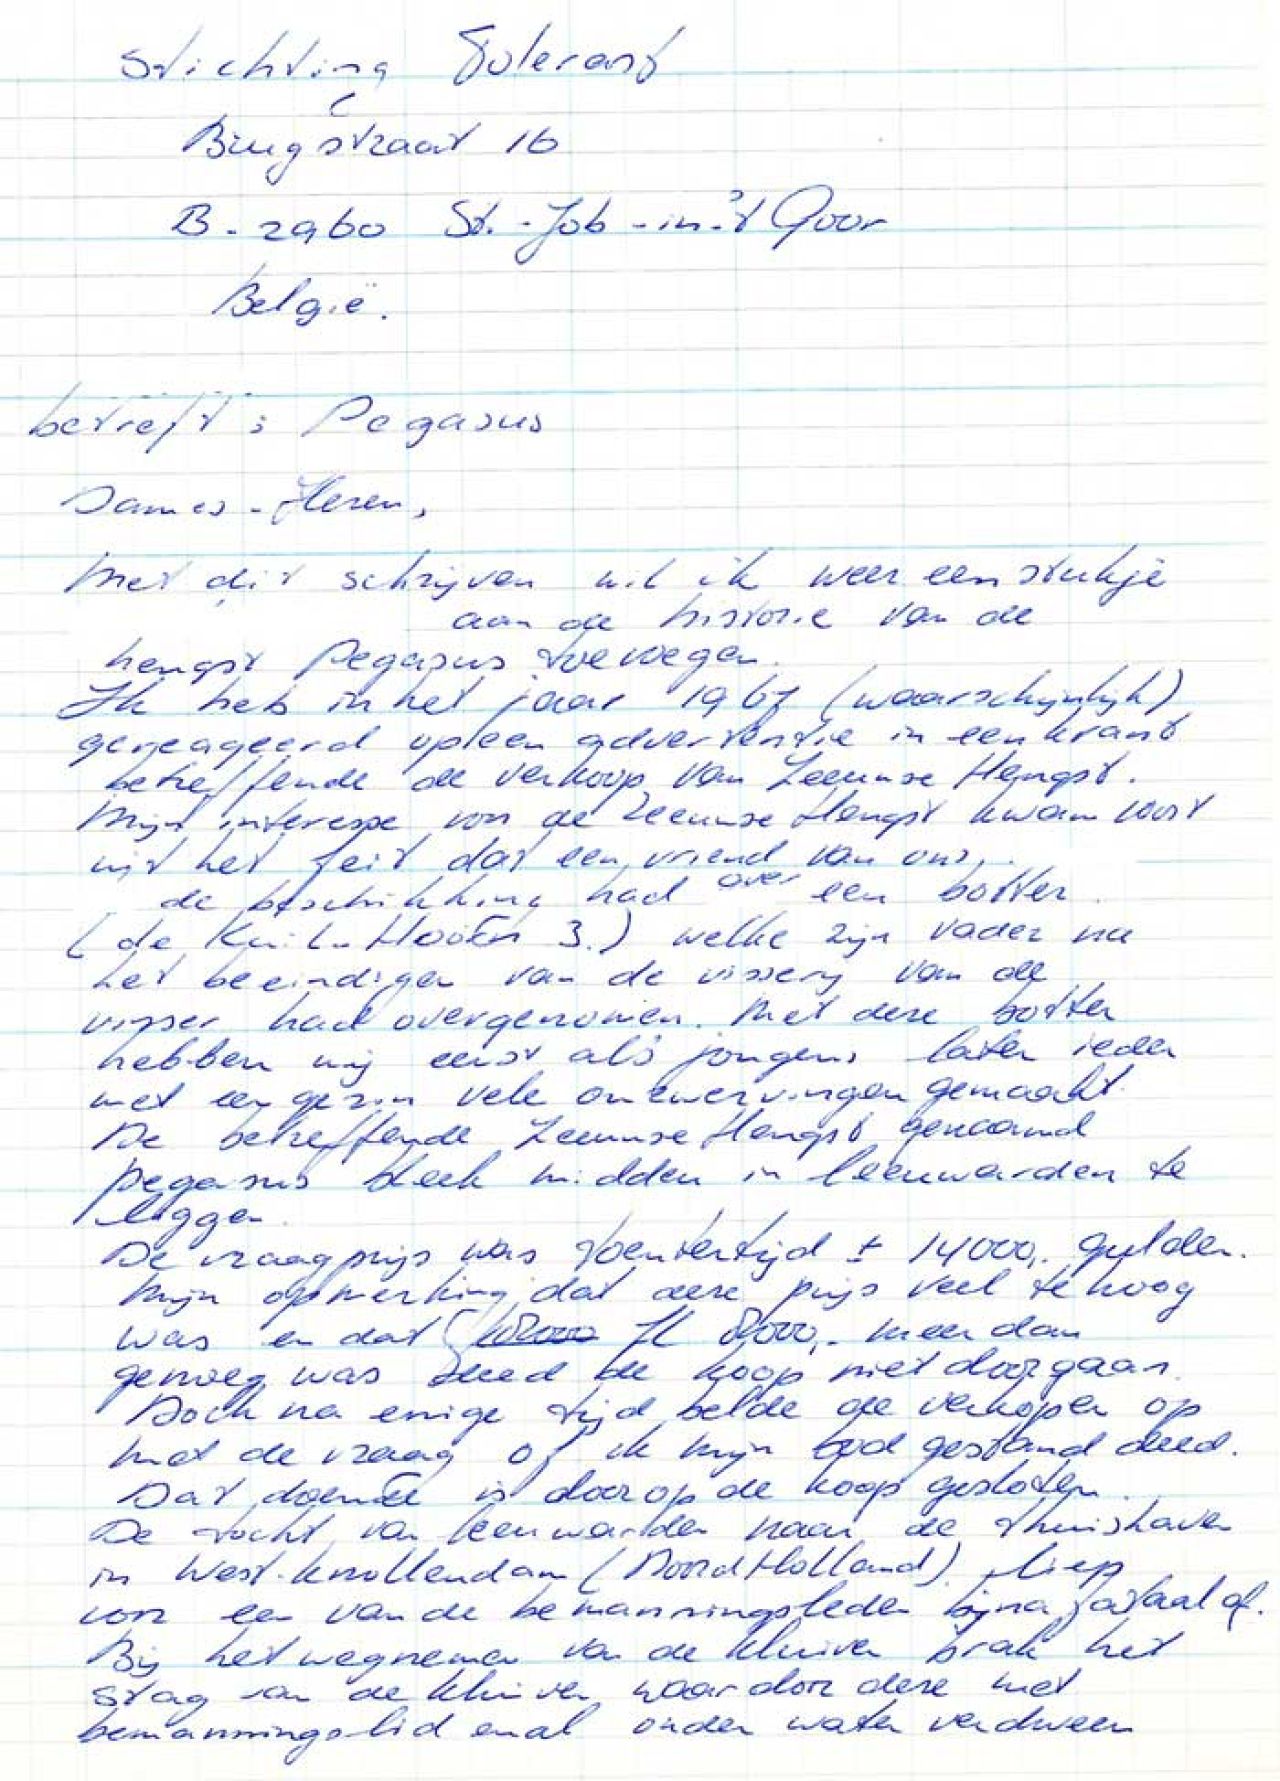 Stichting Tolerant
Brugstraat 16
B-2960 St.-Job-in-'t Goor
België.
betreft: Pegasus
Dames-Heren,
Met dit schrijven wil ik weer een stukje
aan de historie van de
hengst Pegasus toevoegen.
Ik heb in het jaar 1967 (waarschijnlijk)
gereageerd op een advertentie in een krant
betreffende de verkoop van Zeeuwse Hengst.
Mijn interesse voor de Zeeuwse Hengst kwam voort
uit het feit dat een vriend van ons,
de beschikking had over een botter
(de 3.) welke zijn vader na
het beeindigen van de visserij van de
visser had overgenomen. Met deze botter
hebben wij eerst als jongens later ieder
met een gezin vele omzwervingen gemaakt.
De betreffende Zeeuwse Hengst genaamd
Pegasus bleek midden in Leeuwarden te
liggen.
De vraagprijs was toentertijd ± 14000,- gulden.
Mijn opmerking dat deze prijs veel te hoog
was en dat fl 8000,- meer dan
genoeg was deed de koop niet doorgaan.
Doch na enige tijd belde de verkoper op
met de vraag of ik mijn bod gestand deed.
Dat doende is daarop de koop gesloten.
De tocht van Leeuwarden naar de thuishaven
in West-Knollendam (Noord Holland) liep
voor een van de bemanningsleden bijna fataal af.
Bij het wegnemen van de kluiver brak het
stag van de kluiver waardoor deze met
bemanningslid en al onder water verdween